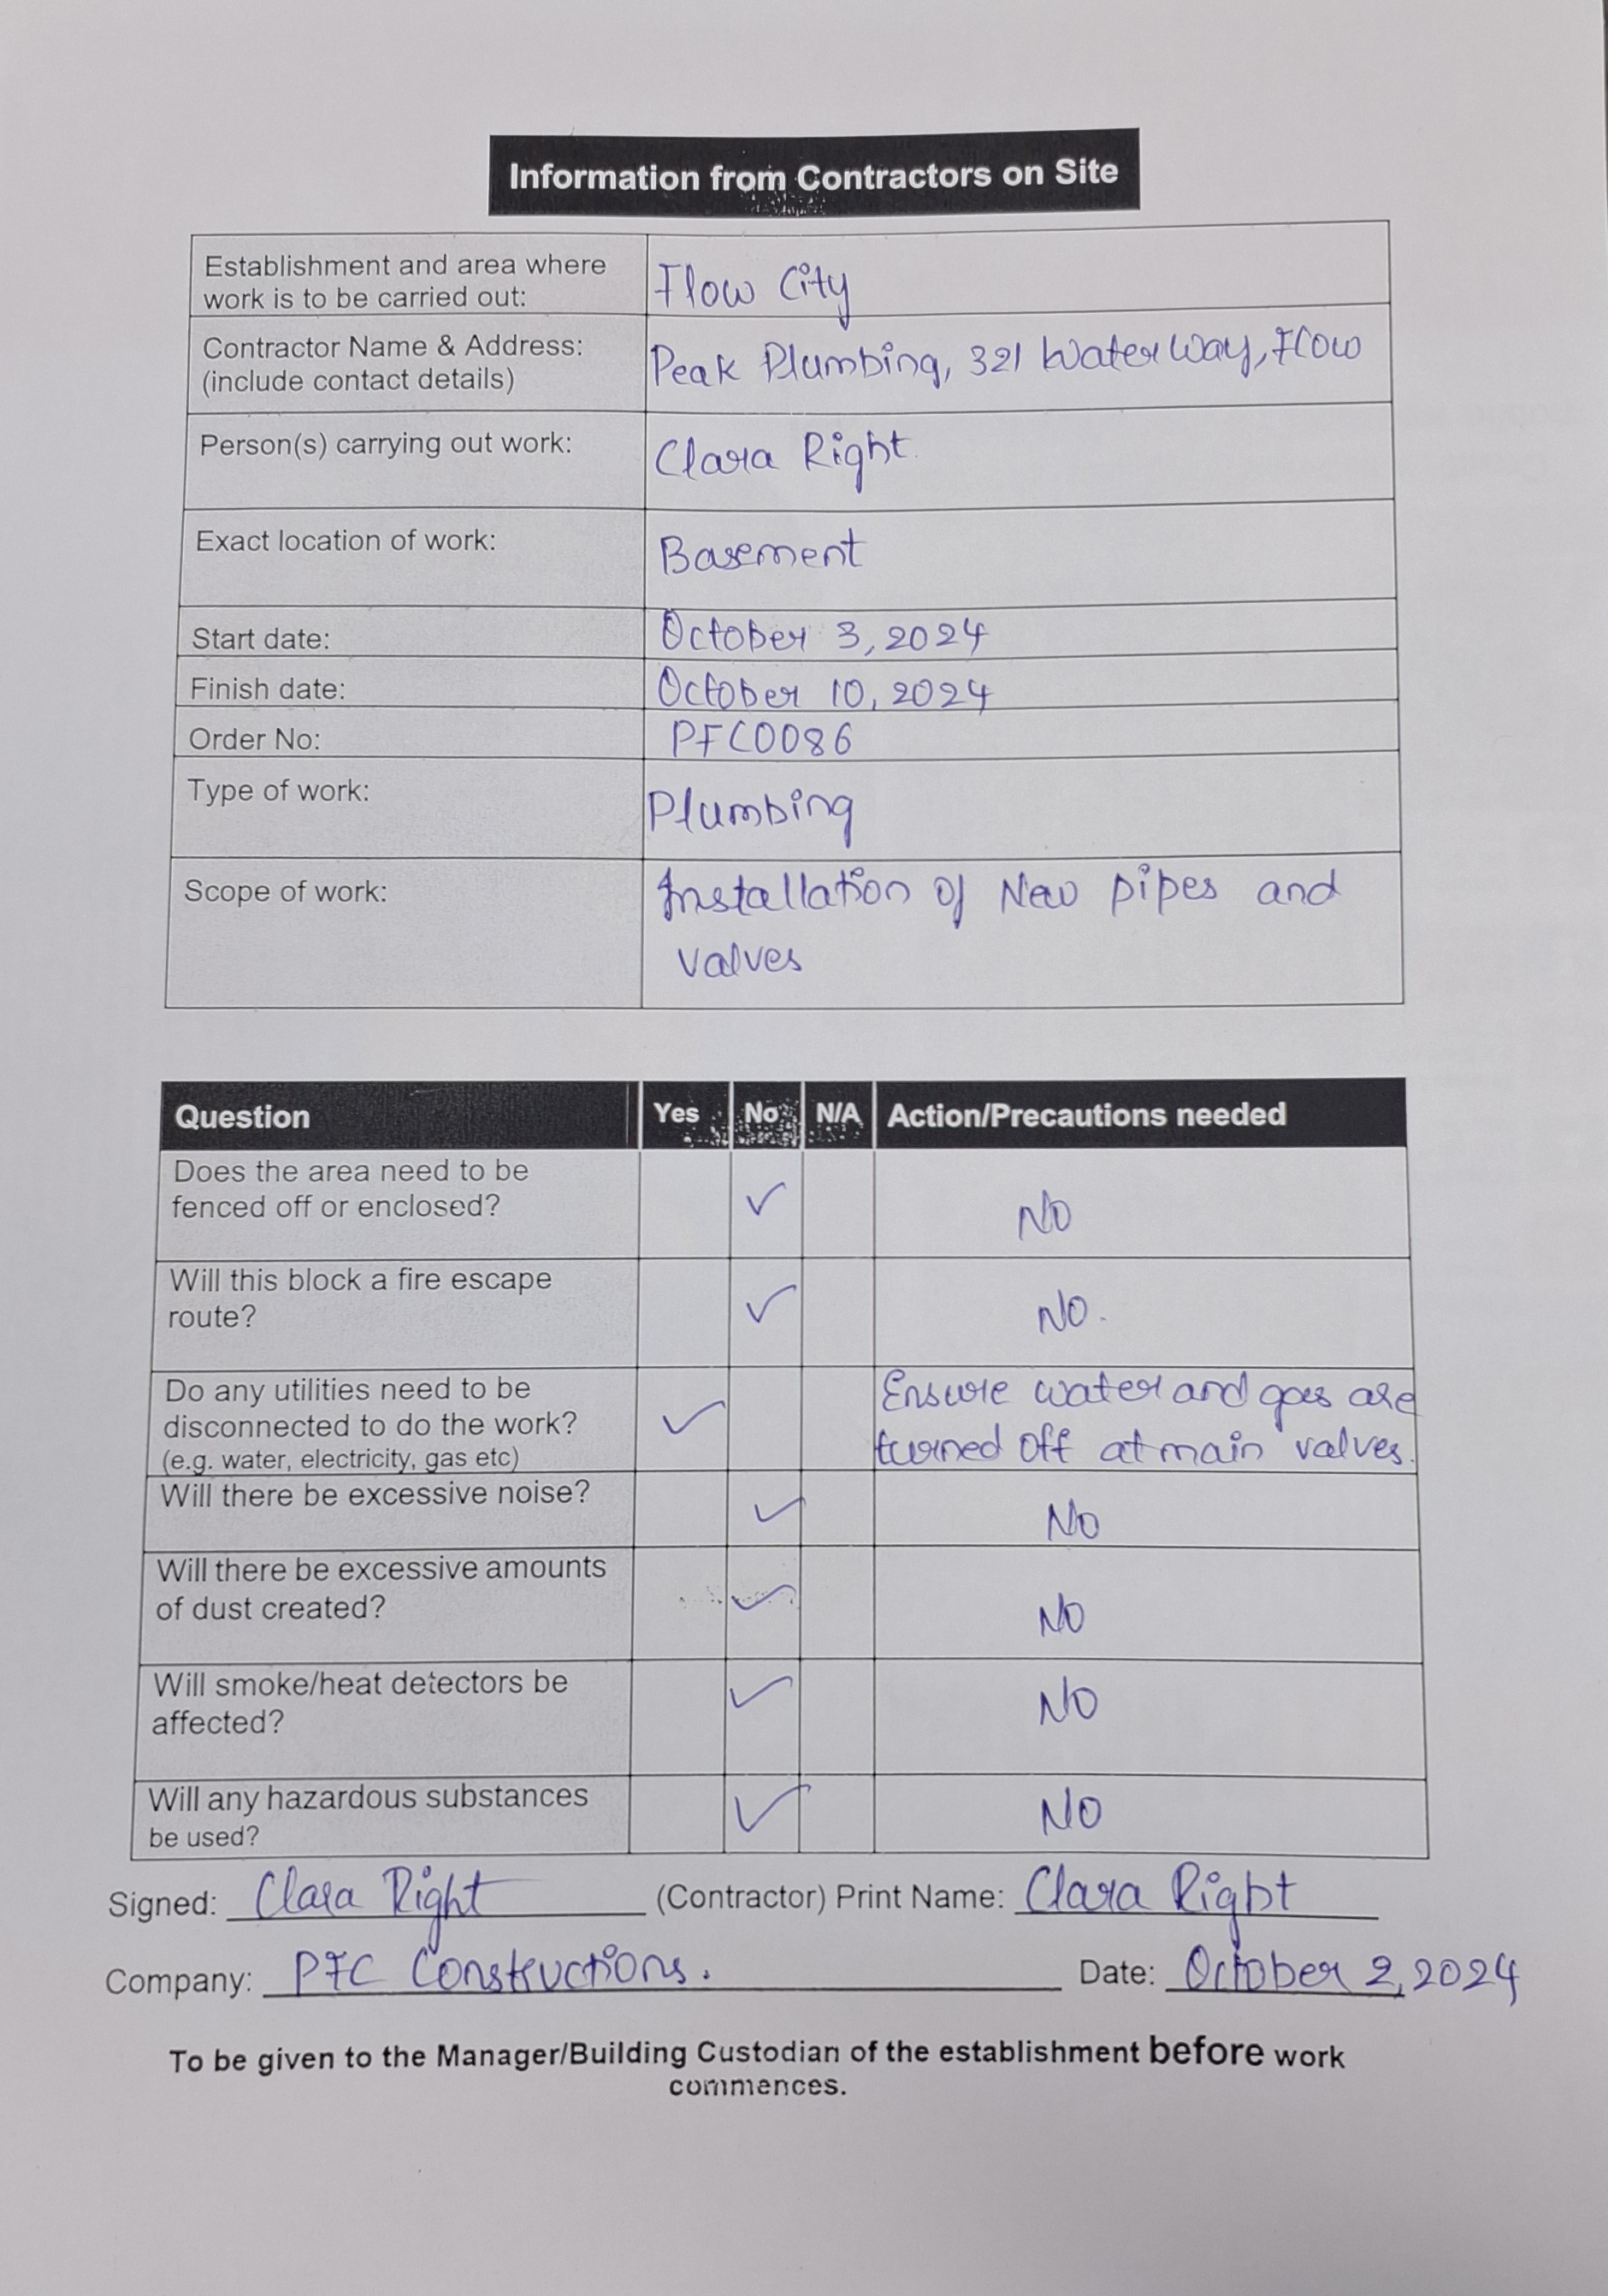 Information from Contractors on Site
Establishment and area where
work is to be carried out:
Flow City
Contractor Name & Address:
(include contact details)
Peak Plumbing, 321 Water Way, Flow
Person(s) carrying out work:
Clara Right
Exact location of work:
Basement
Start date:
October 3, 2024
Finish date:
October 10, 2024
Order No:
PFC0086
Type of work:
Plumbing
Scope of work:
Installation of New pipes and
valves
Question Yes No N/A Action/Precautions needed
Does the area need to be
fenced off or enclosed?
✓
NO
Will this block a fire escape
route?
✓
NO.
Do any utilities need to be
disconnected to do the work?
(e.g. water, electricity, gas etc)
✓
Ensure water and gas are
turned off at main valves.
Will there be excessive noise?
✓
No
Will there be excessive amounts
of dust created?
✓
NO
Will smoke/heat detectors be
affected?
✓
NO
Will any hazardous substances
be used?
✓
NO
Signed: Clara Right (Contractor) Print Name: Clara Right
Company: PFC Constructions. Date: October 2, 2024
To be given to the Manager/Building Custodian of the establishment before work
commences.